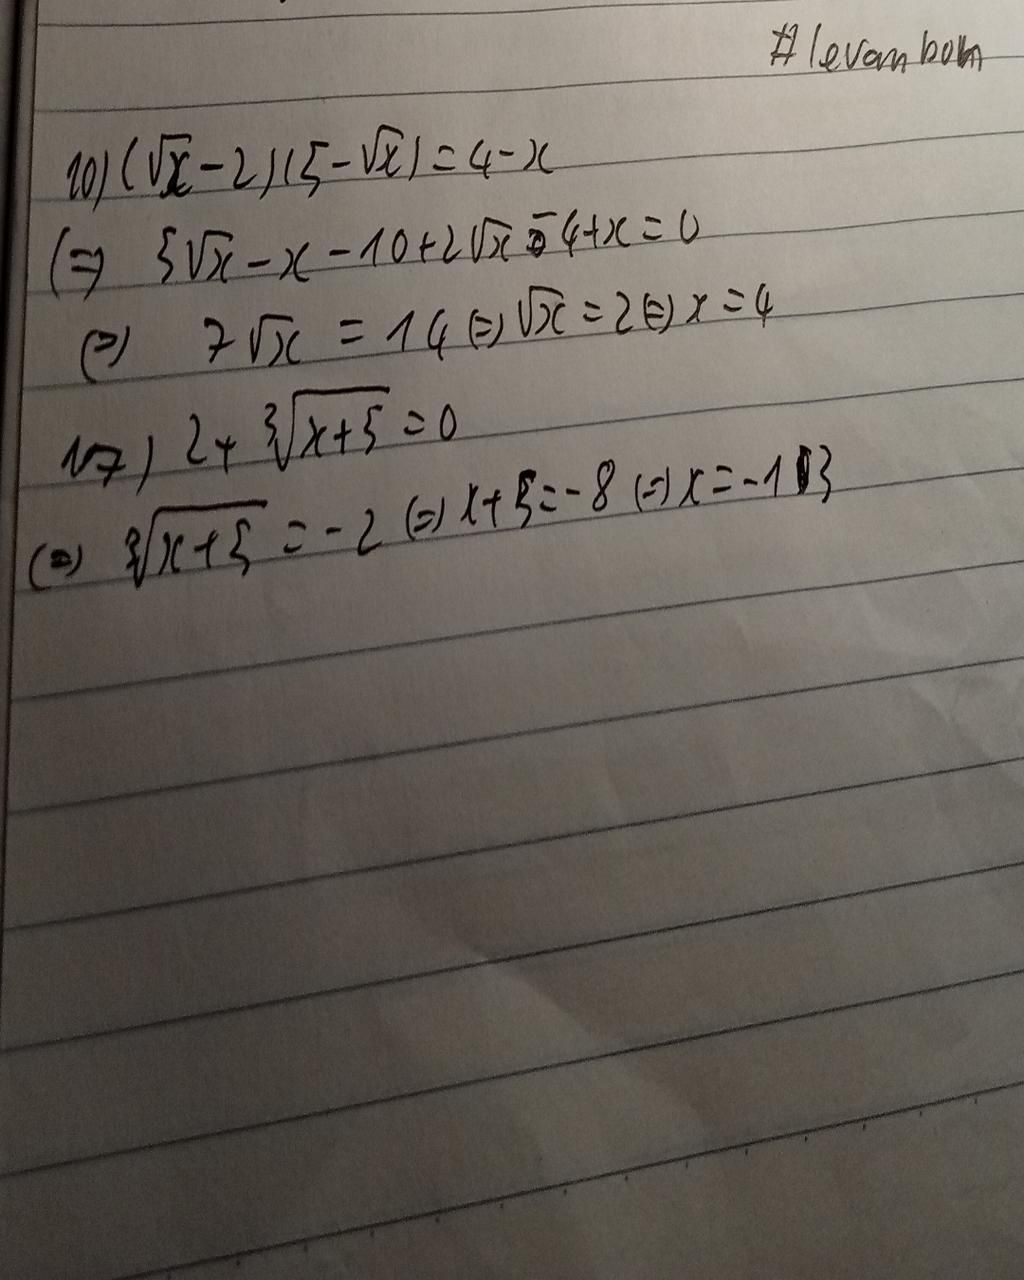 #levanbom
10) (√x - 2)(5 - √x) = 4 - x
(=) 5√x - x - 10 + 2√x - 4 + x = 0
(=) 7√x = 14 (=) √x = 2 (=) x = 4
17) 2 + ∛(x+5) = 0
(=) ∛(x+5) = -2 (=) x + 5 = -8 (=) x = -13